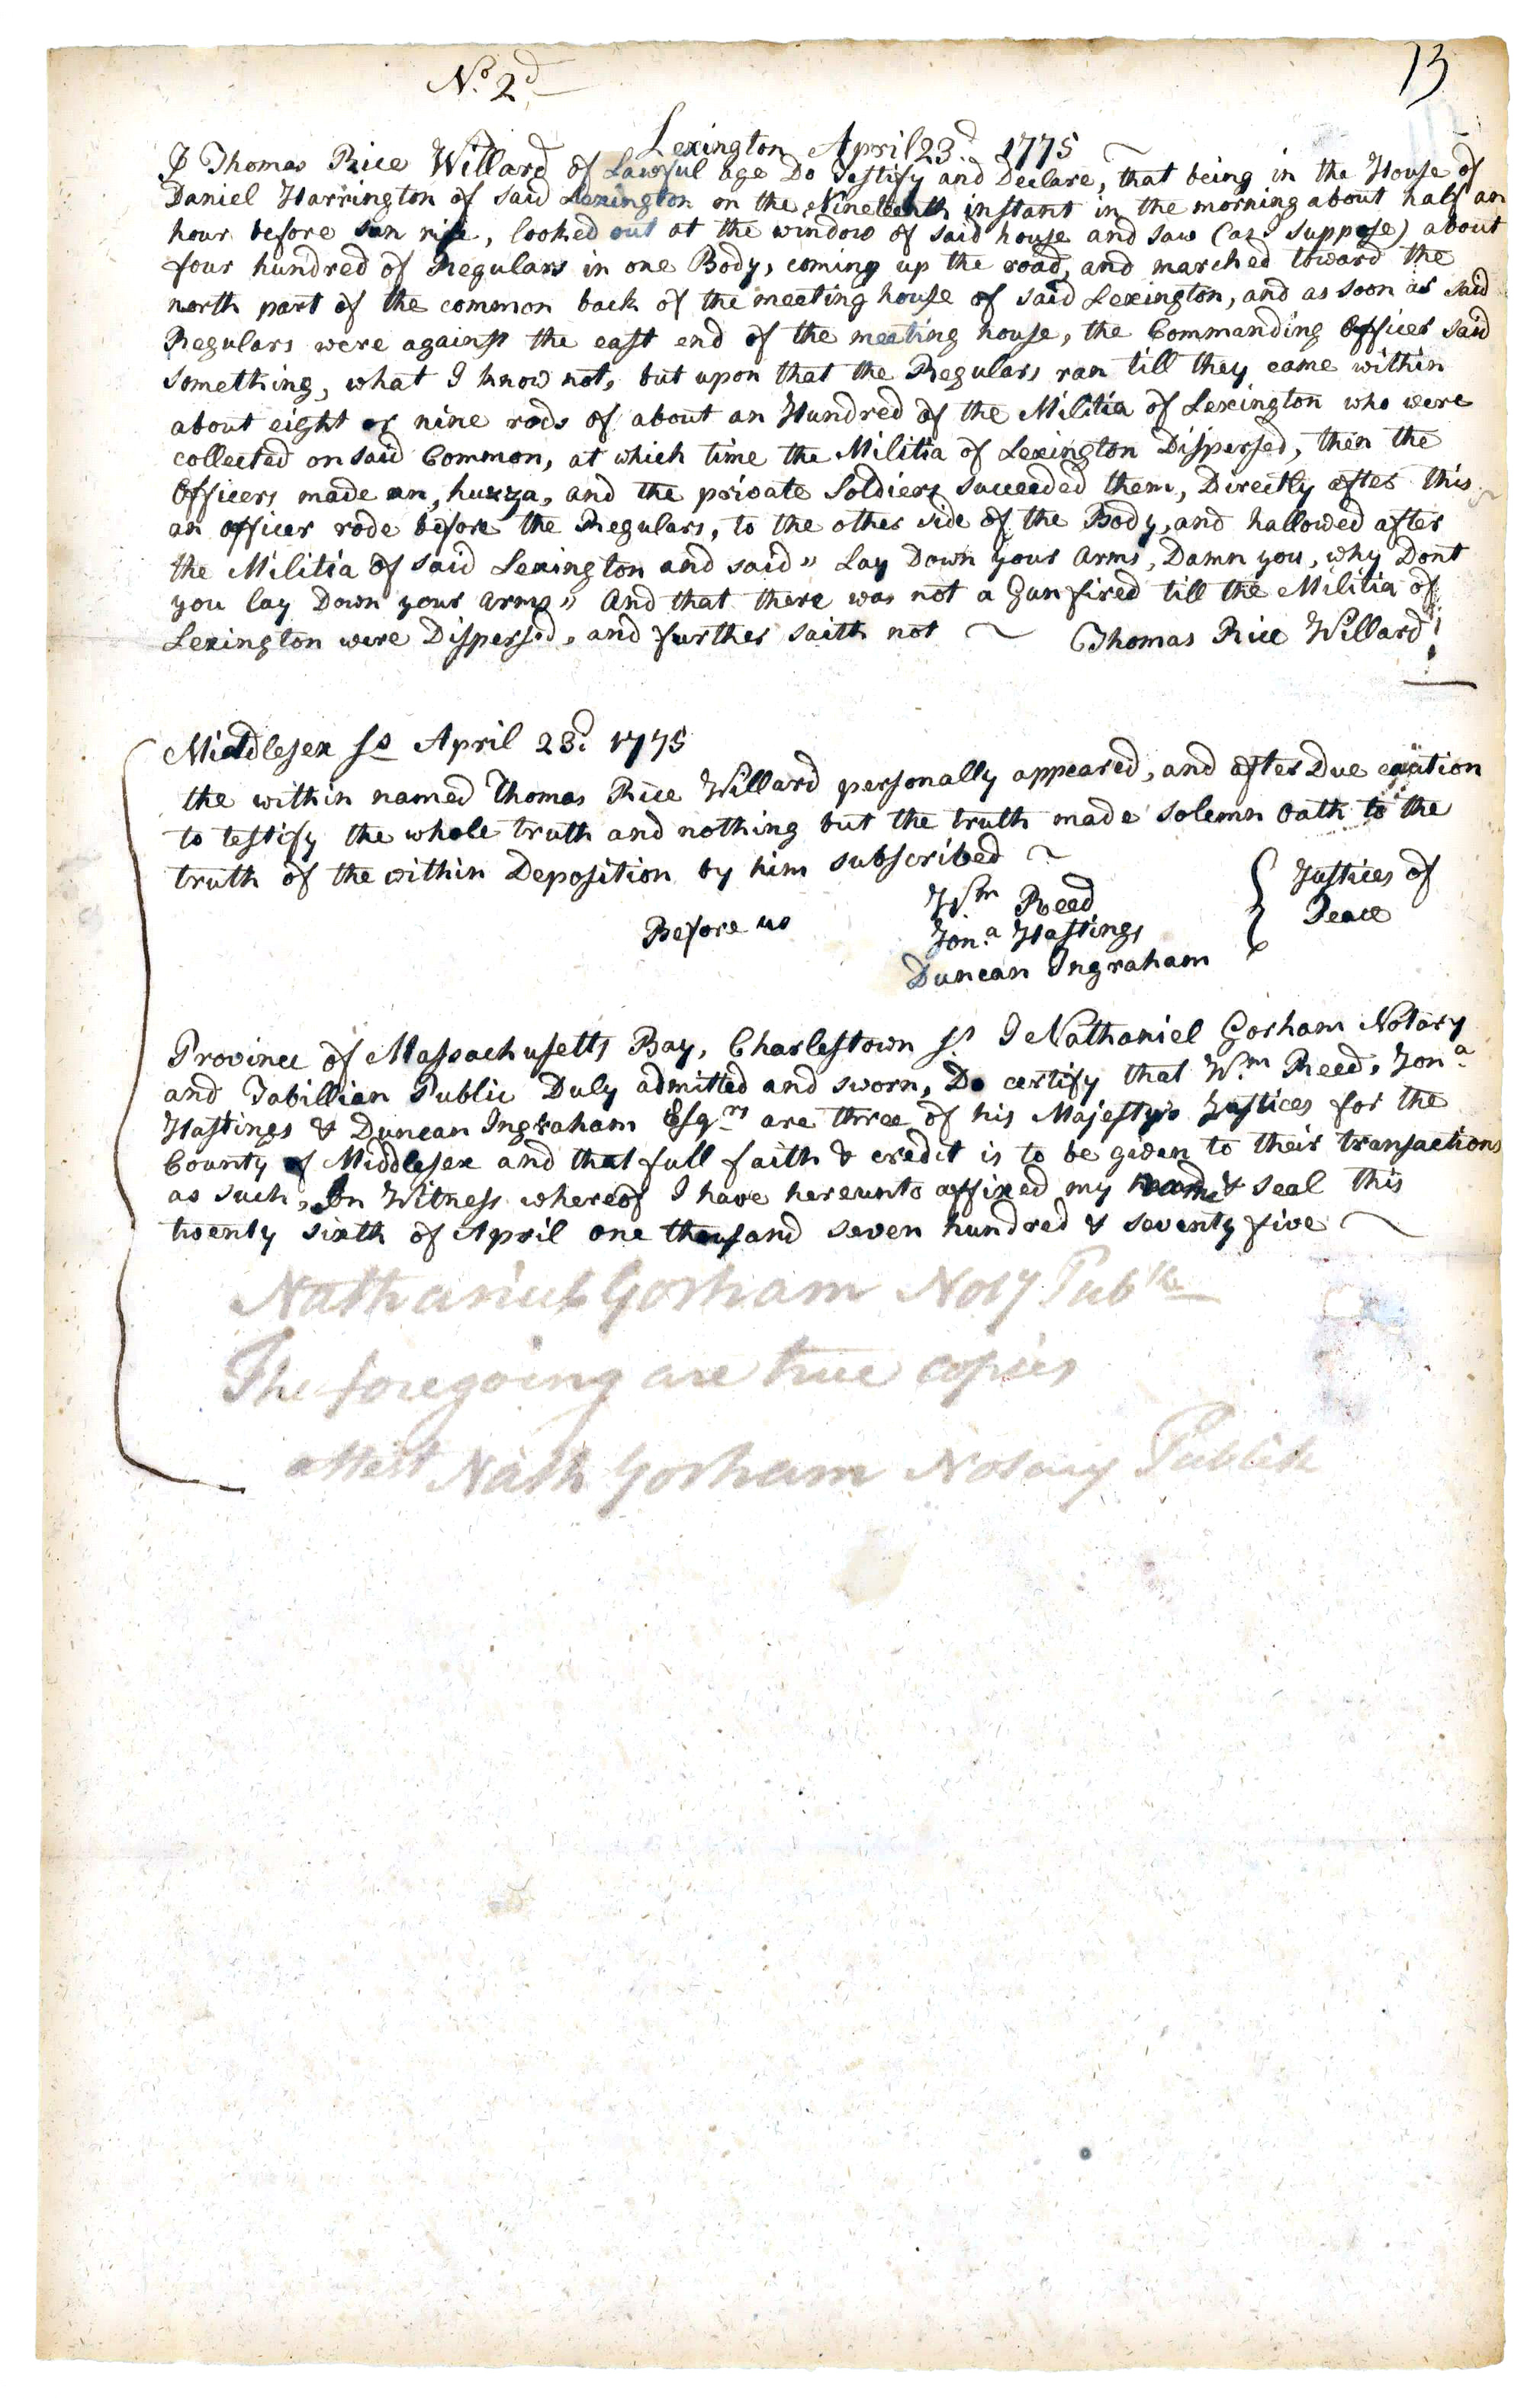 No. 2d
13
Lexington April 23d. 1775
I Thomas Rice Willard of Lawful age Do Testify and Declare, that being in the House of
Daniel Harrington of said Lexington on the Nineteenth instant in the morning about half an
hour before sun rise, looked out at the window of said house and saw (as I suppose) about
four hundred of Regulars in one Body, coming up the road, and marched toward the
north part of the common back of the meeting house of said Lexington, and as soon as said
Regulars were against the east end of the meeting house, the Commanding Officer said
something, what I know not, but upon that the Regulars ran till they came within
about eight or nine rods of about an Hundred of the Militia of Lexington who were
collected on said Common, at which time the Militia of Lexington Dispersed, then the
Officers made an, huzza, and the private Soldiers succeeded them, Directly after this
an officer rode before the Regulars, to the other side of the Body, and hallowed after
the Militia of said Lexington and said " Lay Down your Arms, Damn you, why Dont
you lay Down your arms" And that there was not a Gun fired till the Militia of
Lexington were Dispersed, and further saith not ~ Thomas Rice Willard
Middlesex ss April 23d. 1775
the within named Thomas Rice Willard personally appeared, and after Due caution
to testify the whole truth and nothing but the truth made solemn Oath to the
truth of the within Deposition by him subscribed ~
Before us
Wm Reed
Jona. Hastings
Duncan Ingraham
} Justices of
Peace
Province of Massachusetts Bay, Charlestown ss. I Nathaniel Gorham Notary
and Tabillian Public Duly admitted and sworn, Do certify that Wm. Reed, Jona.
Hastings & Duncan Ingraham Esqrs are three of his Majesty's Justices for the
County of Middlesex and that full faith & credit is to be given to their transactions
as such, In Witness whereof I have hereunto affixed my hand & seal this
twenty sixth of April one thousand seven hundred & seventy five ~
Nathaniel Gorham Noty Publk
The foregoing are true copies
attest Nath Gorham Notary Publick